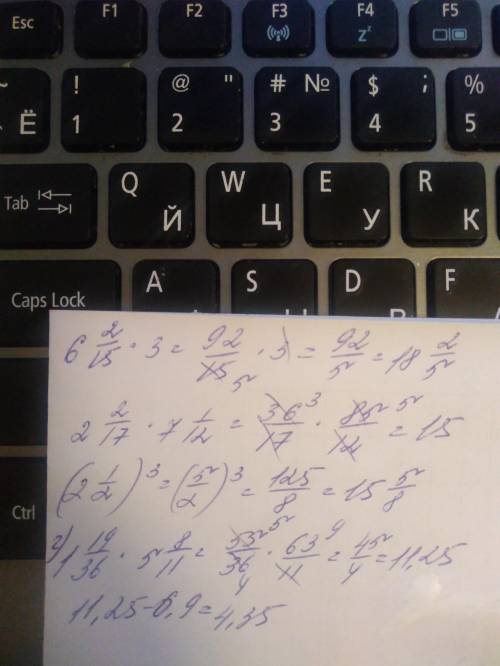 Esc F1 F2 F3 F4 F5
~ Ё ! 1 @ " 2 # № 3 $ ; 4 % 5
Tab Q Й W Ц E У R К
Caps Lock A S D F
Ctrl
6 2/15 · 3 = 92/15 5 · 3 = 92/5 = 18 2/5
2 2/17 · 7 1/12 = 36/17 3 · 85/12 5 = 15
(2 1/2)³ = (5/2)³ = 125/8 = 15 5/8
2) 1 19/36 · 5 8/11 = 55/36 5 4 · 63/11 9 = 45/4 = 11,25
11,25 - 6,9 = 4,35